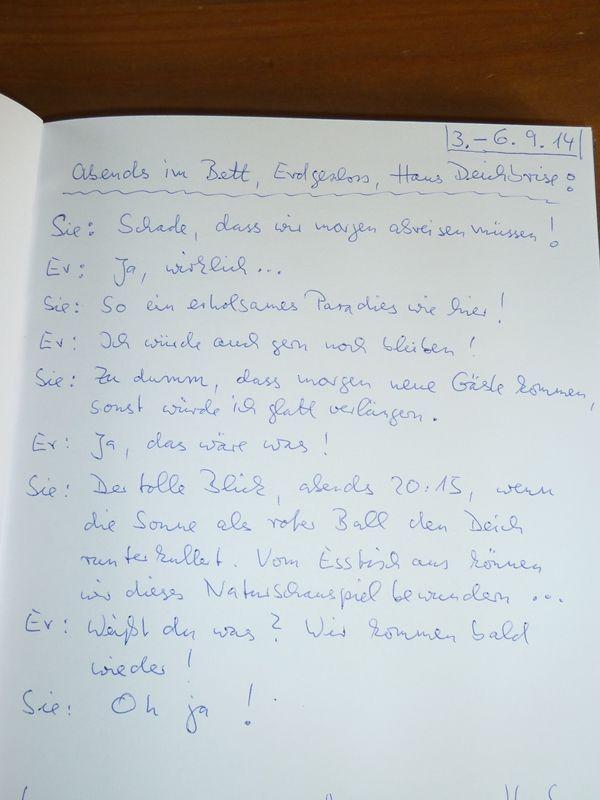 3.-6.9.14
abends im Bett, Erdgeschoss, Haus Deichbrise:
Sie: Schade, dass wir morgen abreisen müssen!
Er: Ja, wirklich...
Sie: So ein erholsames Paradies wie hier!
Er: Ich würde auch gern noch bleiben!
Sie: Zu dumm, dass morgen neue Gäste kommen,
sonst würde ich glatt verlängern.
Er: Ja, das wäre was!
Sie: Der tolle Blick, abends 20:15, wenn
die Sonne als roter Ball den Deich
runterkullert. Vom Esstisch aus können
wir dieses Naturschauspiel bewundern ...
Er: Weißt du was? Wir kommen bald
wieder!
Sie: Oh ja!